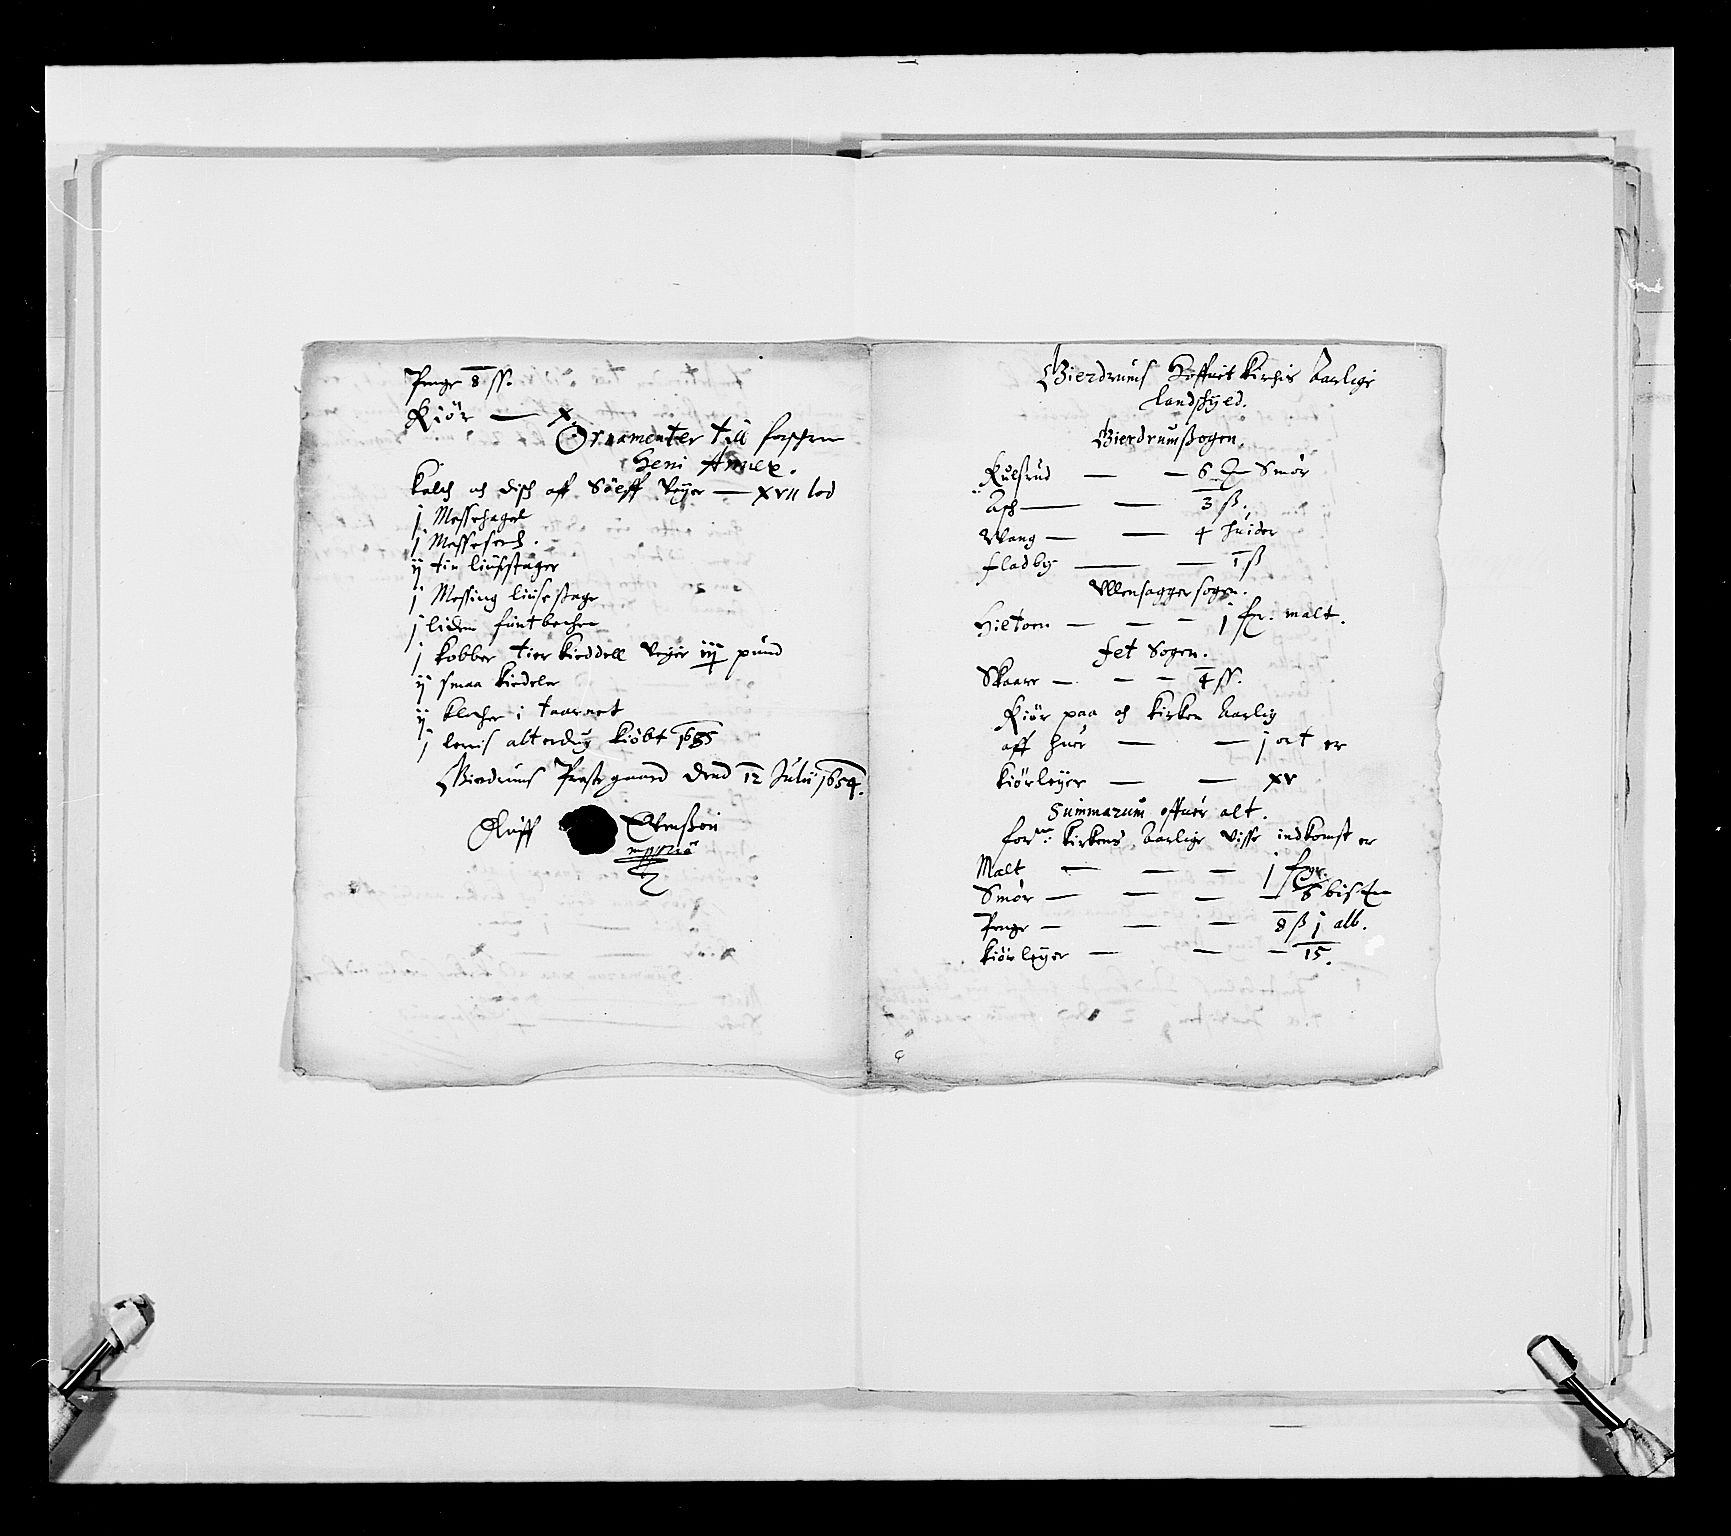 Penge 8 ss.
Kiör — x
Ornamenter till forschr.ne
Heni Annex.
Kalch och disch aff Sölff Veyer — xvii lod
j Messehagel
j Messeserch.
ij tin liusestager
j Messing liusestage
j liden funtbechen
j kobber tiær kieddell Veyer iij pund
ij smaa kiedeler
ij klocher i taarnet
j lerris alterdug kiöbt 1635
Gierdrums Prestegaard Dend 12 Julij 1654.
Oluff Evenßön
mppria
Gierdrums Hoffuit Kirches Aarlige
landschyed.
Gierdrumßogen.
Kulsrud — — 6 Smör
Asch — — 3 ß.
Wang — — 4 huider
fladby — — 1 ß
Ullensagger sogen.
Hiltoen — — — j fr: malt.
fet Sogen.
Skaare — — — 4 ss.
Kiör paa och kirken Aarlig
aff huer — — j ort er
kiörleyer — — xv
Summarum offuer alt.
for:ne kirkens Aarlige Visse indkomst er
Malt — — — j fr.
Smör — — — — 6 bis.
Penge — — — 8 ß j alb.
kiörleyer — — — 15.